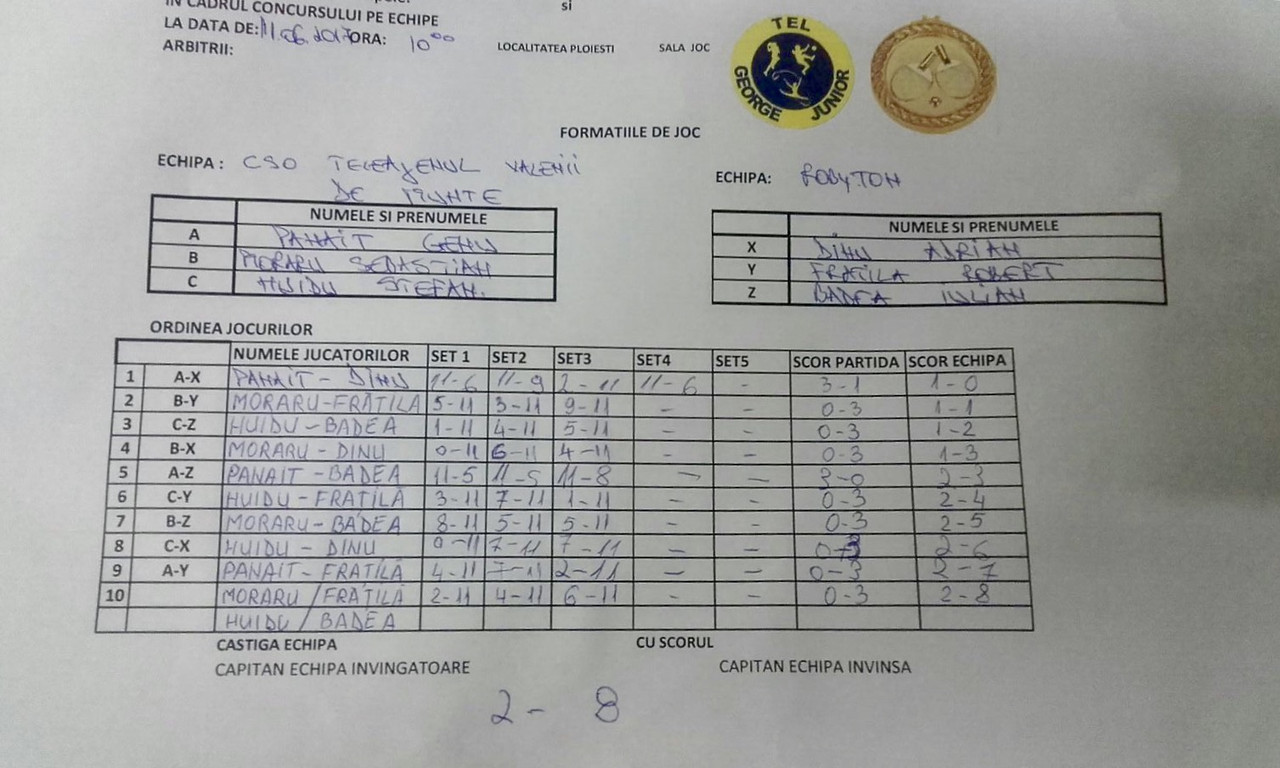 IN CADRUL CONCURSULUI PE ECHIPE
si
LA DATA DE: 11.06.2017 ORA: 10⁰⁰
ARBITRII:
LOCALITATEA PLOIESTI SALA JOC
TEL
GEORGE JUNIOR
FORMATIILE DE JOC
ECHIPA: CSO TELEAJENUL VALENII
DE MUNTE
ECHIPA: ROBYTON
NUMELE SI PRENUMELE
A PANAIT GENU
B MORARU SEBASTIAN
C HUIDU STEFAN.
NUMELE SI PRENUMELE
X DINU ADRIAN
Y FRATILA ROBERT
Z BADEA IULIAN
ORDINEA JOCURILOR
NUMELE JUCATORILOR SET 1 SET2 SET3 SET4 SET5 SCOR PARTIDA SCOR ECHIPA
1 A-X PANAIT - DINU 11-6 11-9 2-11 11-6 - 3-1 1-0
2 B-Y MORARU-FRĂTILA 5-11 3-11 9-11 - - 0-3 1-1
3 C-Z HUIDU-BADEA 1-11 4-11 5-11 - - 0-3 1-2
4 B-X MORARU-DINU 0-11 6-11 4-11 - - 0-3 1-3
5 A-Z PANAIT-BADEA 11-5 11-5 11-8 - - 3-0 2-3
6 C-Y HUIDU-FRATILĂ 3-11 7-11 1-11 - - 0-3 2-4
7 B-Z MORARU-BADEA 8-11 5-11 5-11 - - 0-3 2-5
8 C-X HUIDU - DINU 9-11 7-11 7-11 - - 0-3 2-6
9 A-Y PANAIT-FRATILĂ 4-11 7-11 2-11 - - 0-3 2-7
10 MORARU/FRĂTILĂ 2-11 4-11 6-11 - - 0-3 2-8
HUIDU/BADEA
CASTIGA ECHIPA CU SCORUL
CAPITAN ECHIPA INVINGATOARE CAPITAN ECHIPA INVINSA
2 - 8